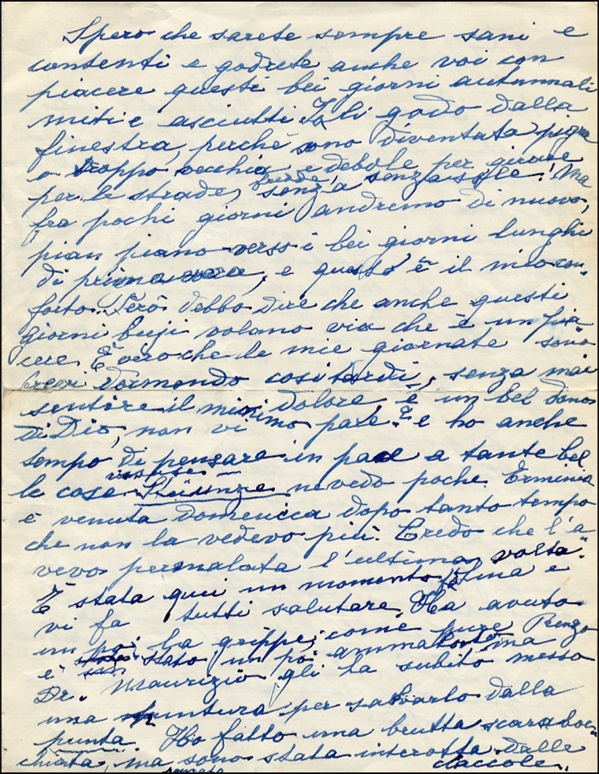 Spero che sarete sempre sani e
contenti e godrete anche voi con
piacere questi bei giorni autunnali
miti e asciutti. Io li godo dalla
finestra, perché sono diventata pigra
o troppo vecchia e debole per girare
per le strade, fredde senza sole. Ma
fra pochi giorni andremo di nuovo,
pian piano verso i bei giorni lunghi
di primavera, e questo è il mio con-
forto. Però debbo dire che anche questi
giorni buji volano via che è un pia-
cere. È vero che le mie giornate sono
brevi dormendo così tardi, senza mai
sentire il minimo dolore è un bel dono
di Dio, non vi pare? e ho anche
tempo di pensare in pace a tante bel-
le cose vissute
ne vedo poche. Erminia
è venuta domenica dopo tanto tempo
che non la vedevo più. Credo che l'a-
vevo per malata l'ultima volta.
È stata qui un momento e
vi fa tutti salutare. Ha avuto
un pò la grippe, come pure Renzo
è stato un pò ammalato ma
Dr. Maurizio gli ha subito messo
una puntura per salvarlo dalla
punta. Ho fatto una brutta scaraboc-
chiata, ma sono stata interotta dalle
ciaccole.